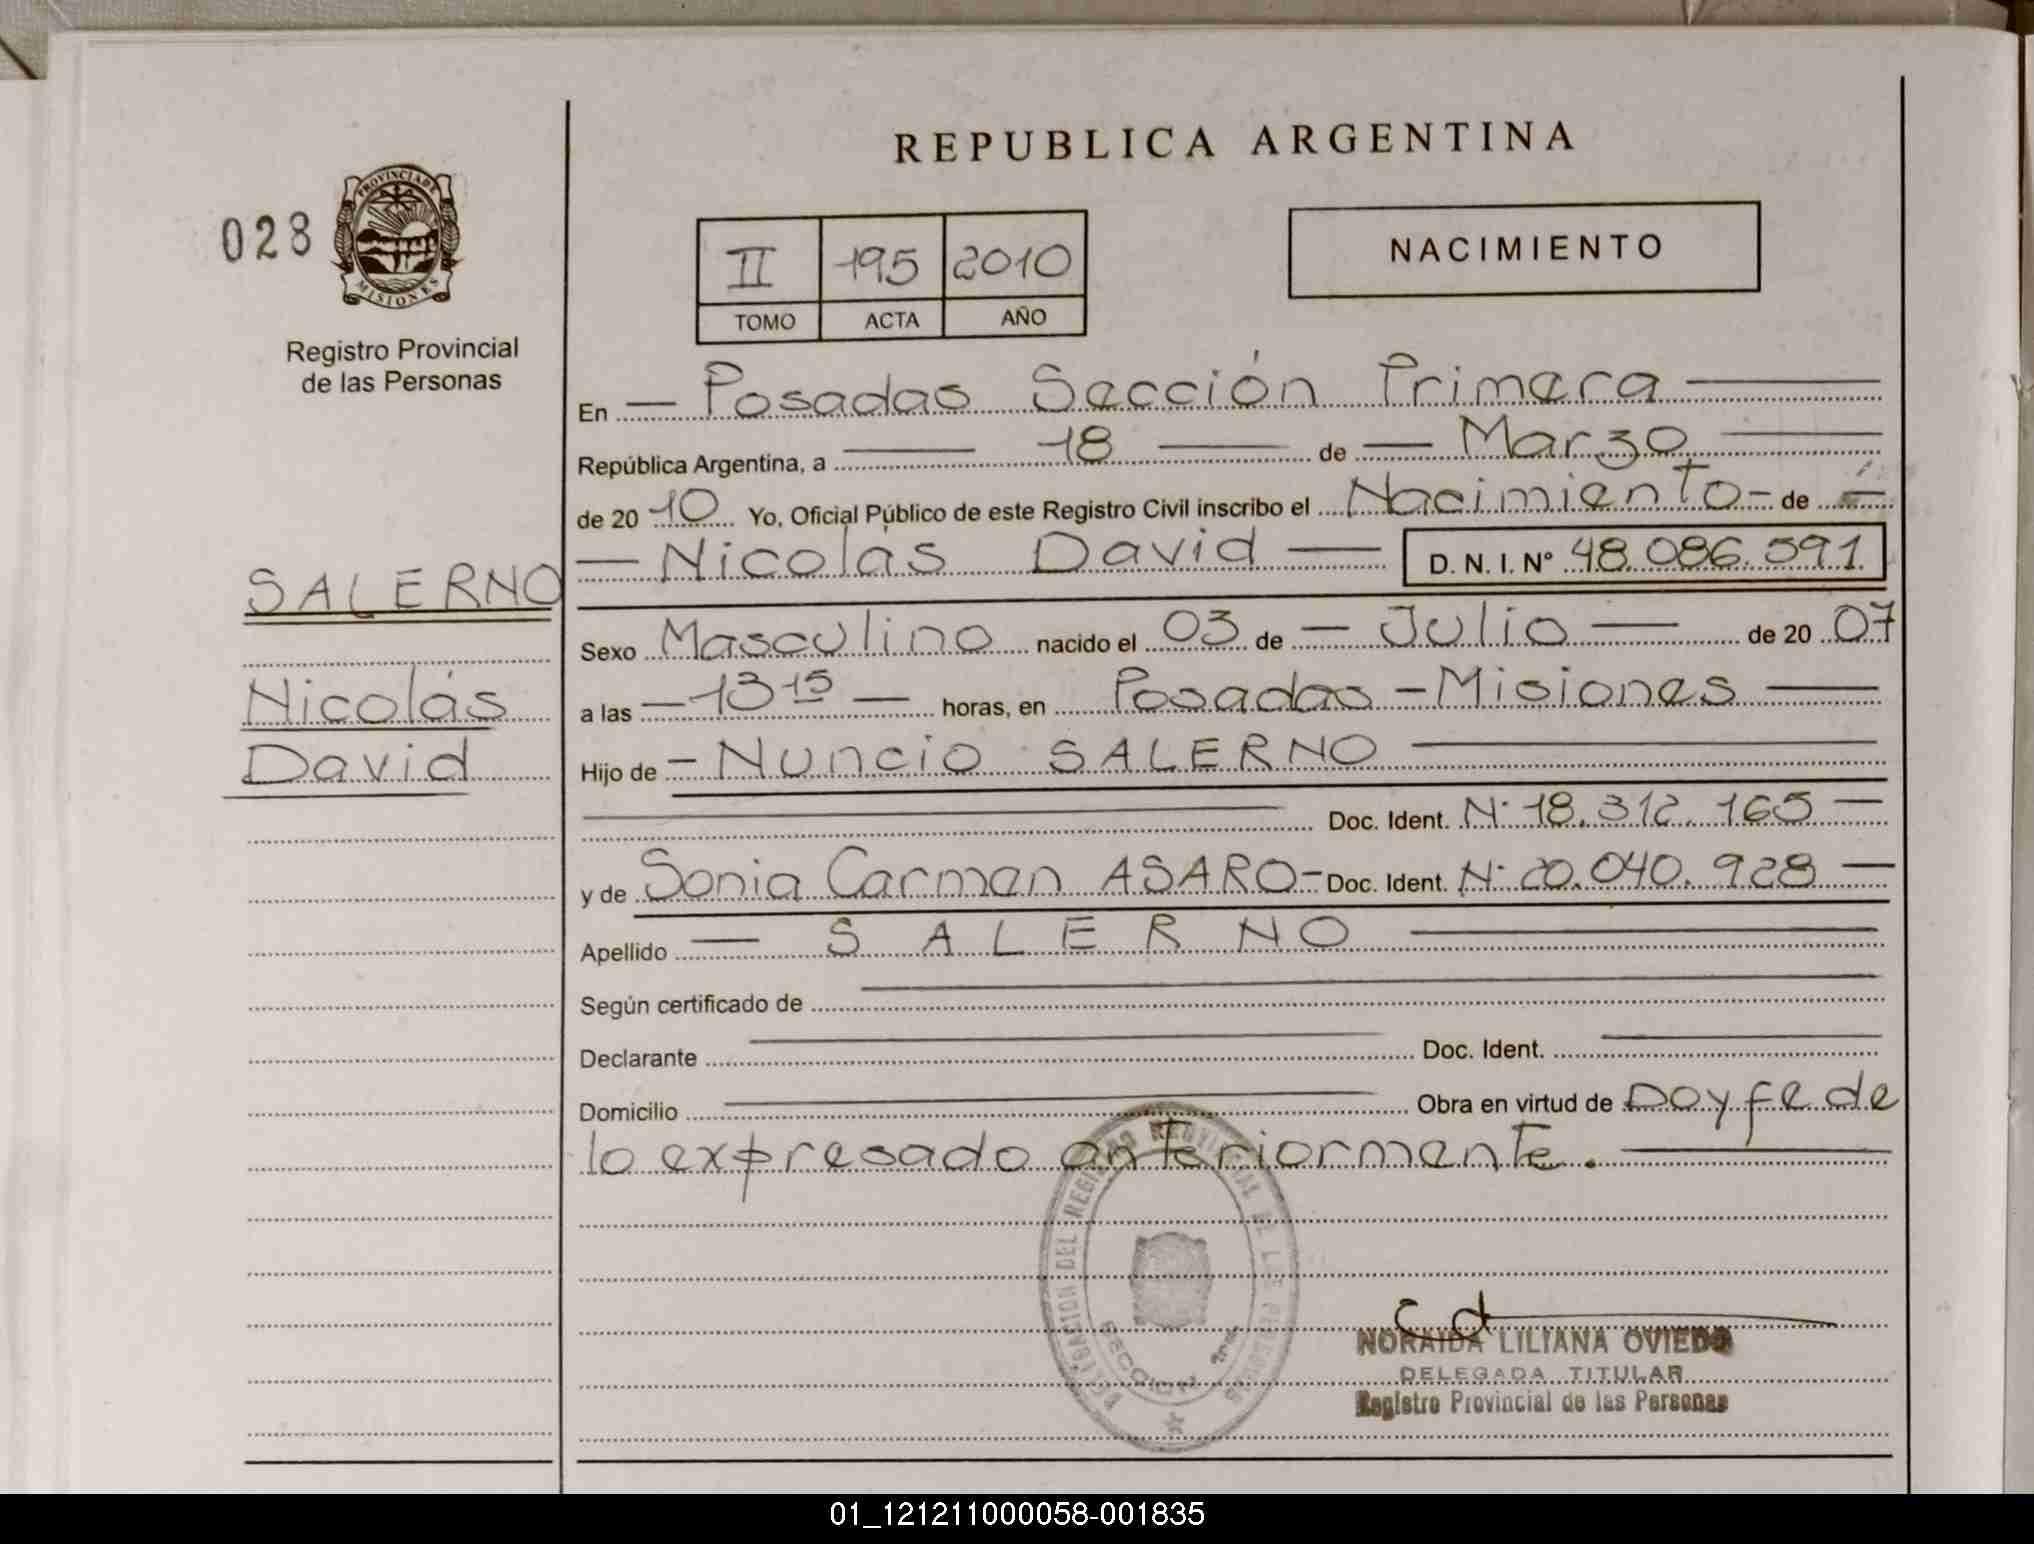 REPUBLICA ARGENTINA
028
PROVINCIA DE
MISIONES
Registro Provincial
de las Personas
II 195 2010
TOMO ACTA AÑO
NACIMIENTO
En Posadas Sección Primera
República Argentina, a 18 de Marzo
de 20 10 Yo, Oficial Público de este Registro Civil inscribo el Nacimiento de
Nicolás David D. N. I. N° 48.086.591
SALERNO
Nicolás
David
Sexo Masculino nacido el 03 de Julio de 20 07
a las 13 15 horas, en Posadas - Misiones
Hijo de Nuncio SALERNO
Doc. Ident. N° 18.312.165
y de Sonia Carmen ASARO Doc. Ident. N° 20.040.928
Apellido SALERNO
Según certificado de
Declarante Doc. Ident.
Domicilio Obra en virtud de Doy fe de
lo expresado anteriormente.
DELEGACION DEL REGISTRO PROVINCIAL DE LAS PERSONAS
SECCION
NORAIDA LILIANA OVIEDO
DELEGADA TITULAR
Registro Provincial de las Personas
01_121211000058-001835